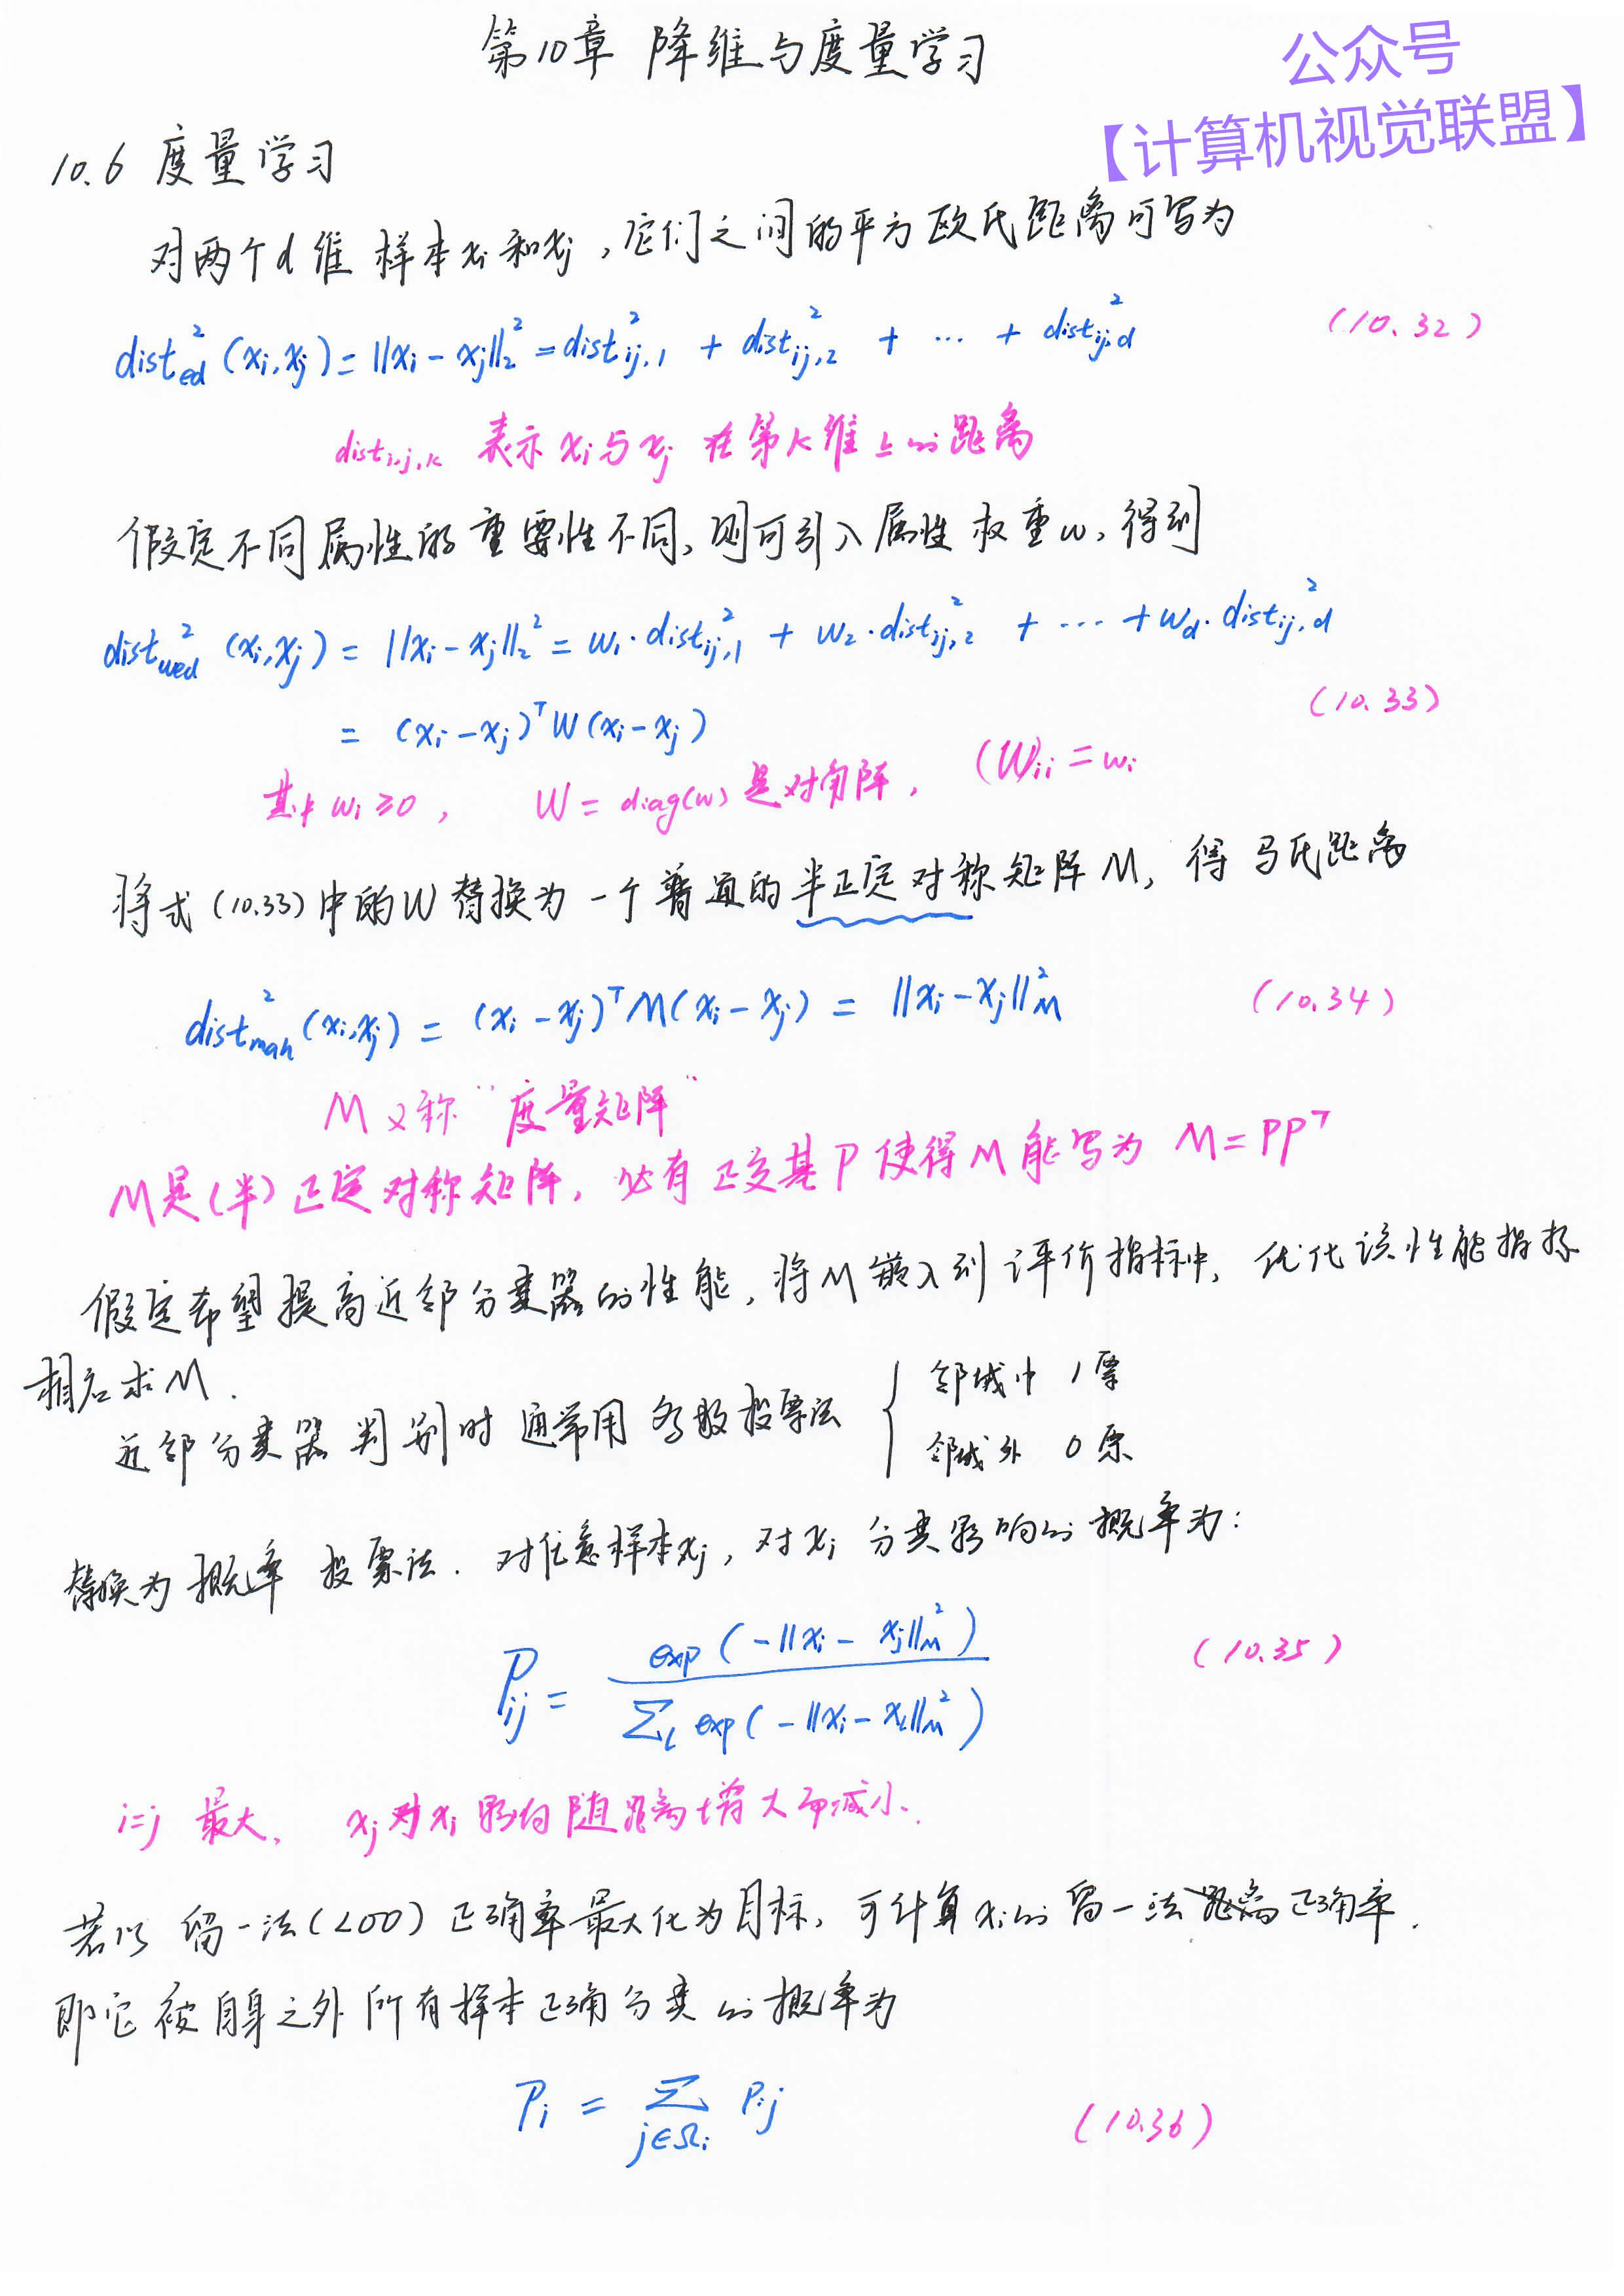 第10章 降维与度量学习
公众号
【计算机视觉联盟】
10.6 度量学习
对两个d维样本xi和xj,它们之间的平方欧氏距离可写为
dist²ed (xi,xj) = ||xi - xj||₂² = dist²ij,1 + dist²ij,2 + ... + dist²ij,d (10.32)
disti,j,k 表示xi与xj在第k维上的距离
假定不同属性的重要性不同,则可引入属性权重w,得到
dist²wed (xi,xj) = ||xi - xj||₂² = w1·dist²ij,1 + w2·dist²ij,2 + ... + wd·dist²ij,d
= (xi - xj)ᵀW(xi - xj) (10.33)
其中wi ≥ 0, W = diag(w) 是对角阵, (W)ii = wi
将式(10.33)中的W替换为一个普通的半正定对称矩阵M, 得马氏距离
dist²mah (xi,xj) = (xi - xj)ᵀM(xi - xj) = ||xi - xj||²M (10.34)
M又称“度量矩阵”
M是(半)正定对称矩阵, 必有正交基P使得M能写为 M = PPᵀ
假定希望提高近邻分类器的性能,将M嵌入到评价指标中, 优化该性能指标
相应求M.
近邻分类器判别时通常用多数投票法 { 邻域中 1票
邻域外 0票
替换为概率投票法. 对任意样本xj, 对xi分类影响的概率为:
Pij = exp(-||xi - xj||²M) / Σl exp(-||xi - xl||²M) (10.35)
i=j 最大, xj对xi影响随距离增大而减小.
若以留一法(LOO)正确率最大化为目标, 可计算xi的留一法距离正确率.
即它被自身之外所有样本正确分类的概率为
Pi = Σ j∈Ωi Pij (10.36)